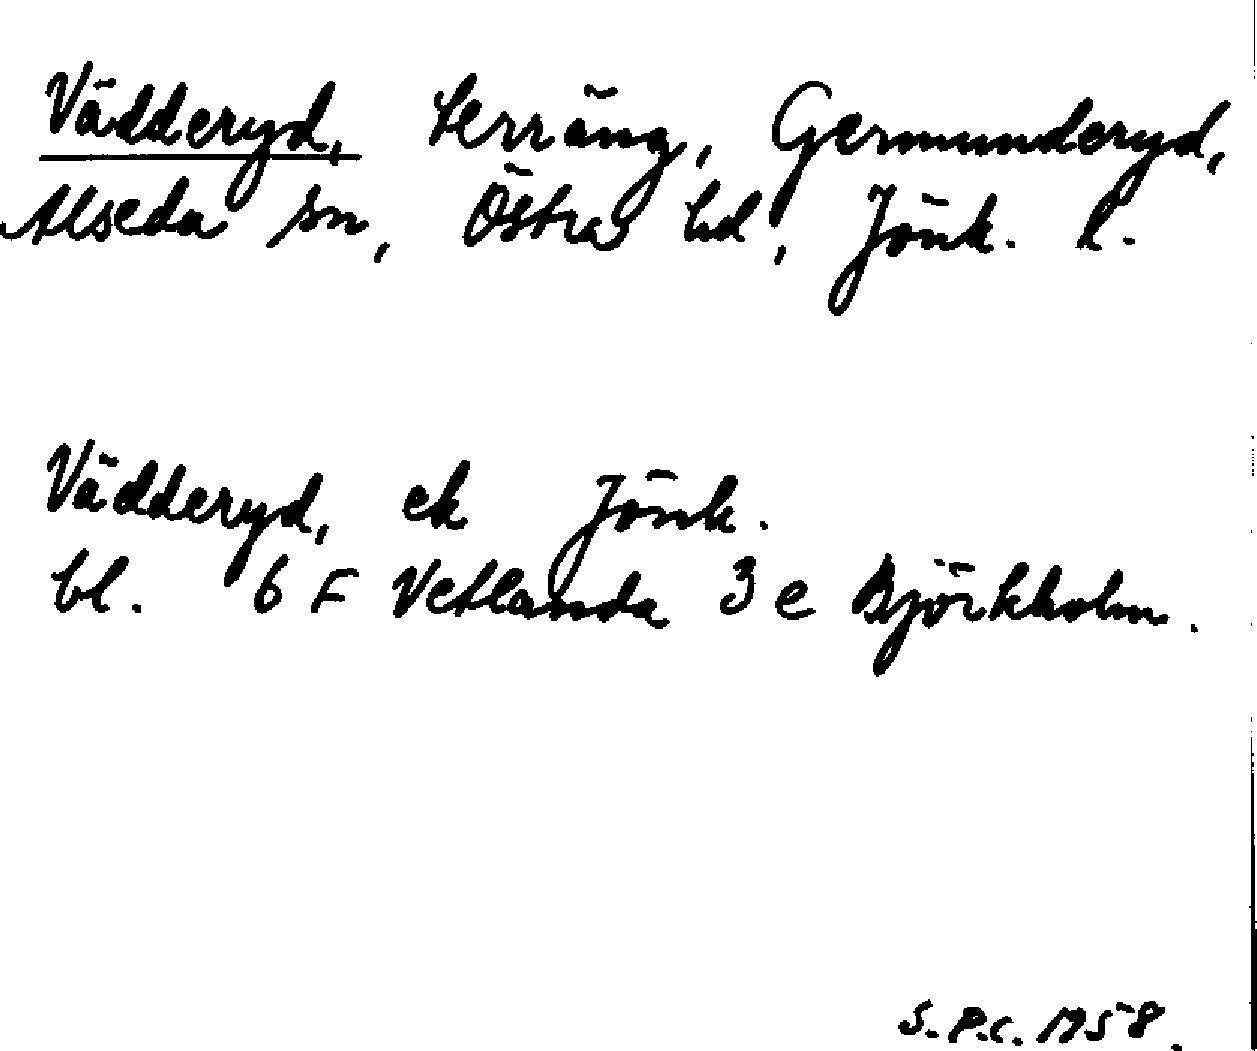 Vädderyd, terräng, Germunderyd,
Alseda sn, Östra hd, Jönk. l.
Vädderyd, ek Jönk.
bl. 6 F Vetlanda 3 e Björkholm.
S.P.C. 1958.